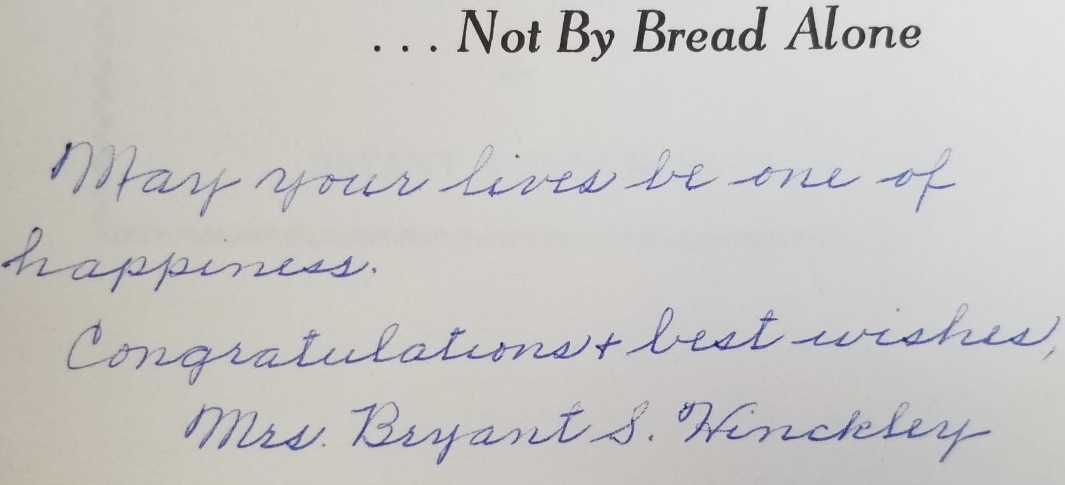 ... Not By Bread Alone
May your lives be one of
happiness.
Congratulations + best wishes,
Mrs. Bryant S. Hinckley